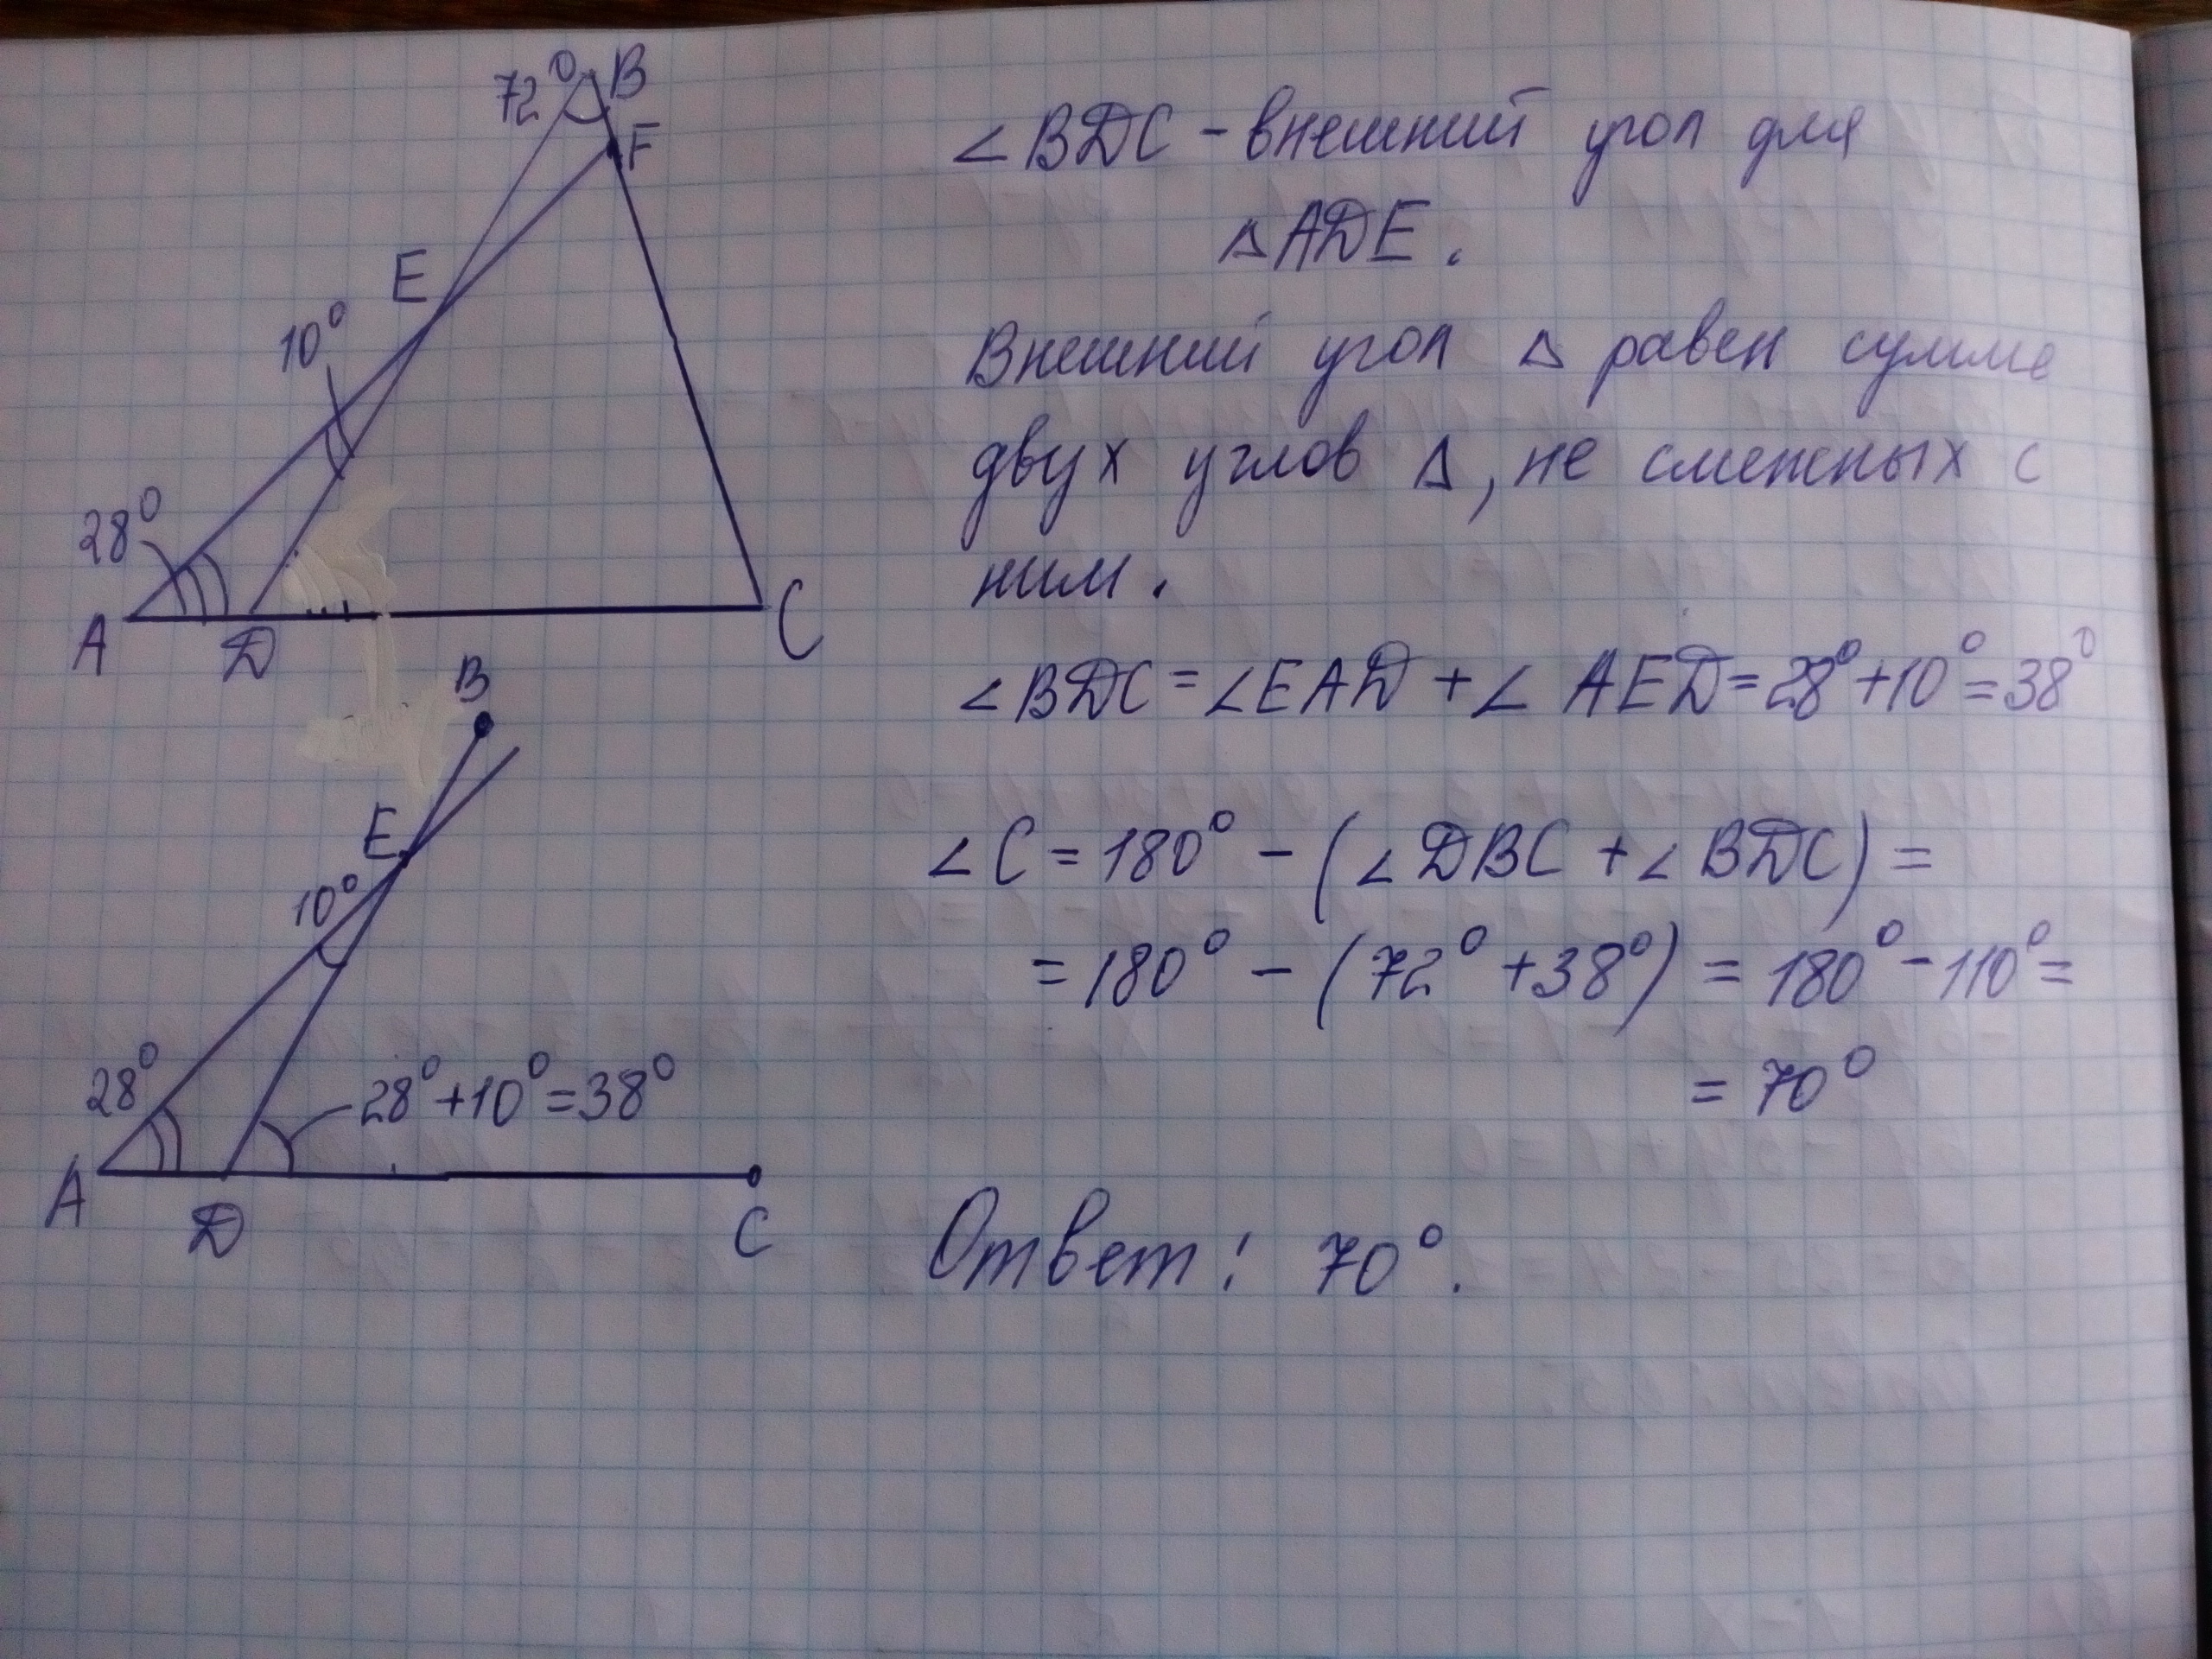 72° B
F
E
10°
28°
A D C
B
E
10°
28°
28°+10°=38°
A D C
∠BDC - внешний угол для
△ADE.
Внешний угол △ равен сумме
двух углов △, не смежных с
ним.
∠BDC = ∠EAD + ∠AED = 28°+10°=38°
∠C = 180° - (∠DBC + ∠BDC) =
= 180° - (72° + 38°) = 180° - 110° =
= 70°
Ответ: 70°.